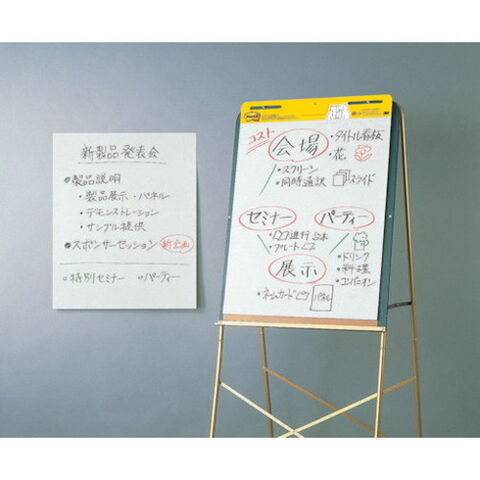 新製品発表会
●製品説明
・製品展示・パネル
・デモンストレーション
・サンプル提供
●スポンサーセッション 新企画
○特別セミナー ○パーティー
Post-it
3M
コスト
会場
・タイトル看板
・花
・スクリーン
・同時通訳
スライド
セミナー
パーティー
進行台本
展示
・ドリンク
・料理
・コンパニオン
・ネームカード